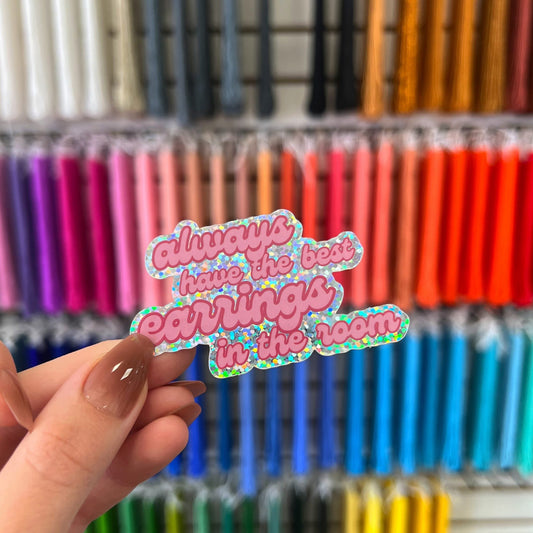 always
have the best
earrings
in the room